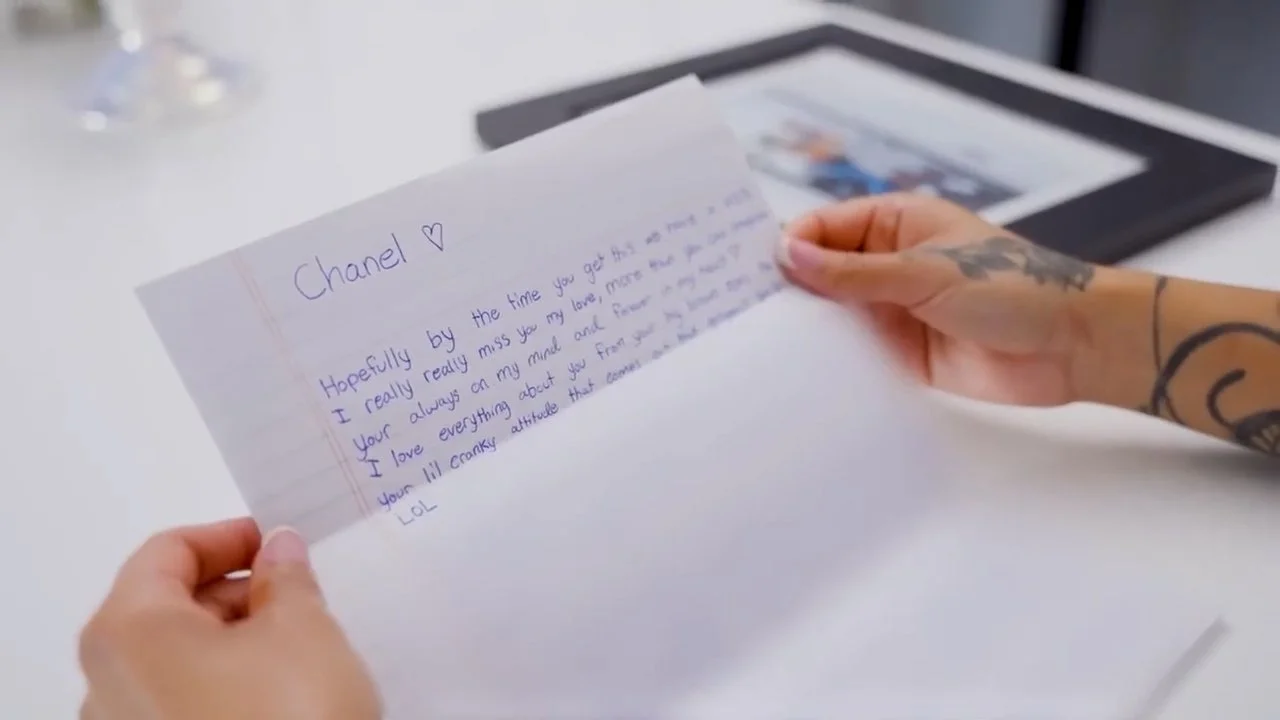 Chanel ♡
Hopefully by the time you get this we have a
I really really miss you my love, more than you can
your always on my mind and forever in my heart ♡
I love everything about you from your big brown eyes
your lil cranky attitude that comes out
LOL